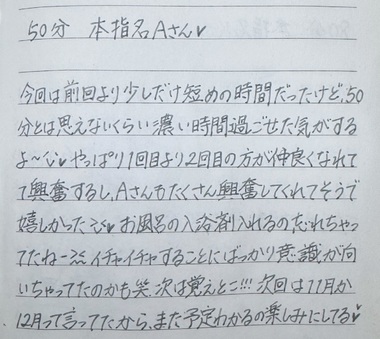 50分 本指名Aさん♥
今回は前回より少しだけ短めの時間だったけど、50
分とは思えないくらい濃い時間過ごせた気がする
よ〜 やっぱり1回目より2回目の方が仲良くなれて
て興奮するし、Aさんもたくさん興奮してくれてそうで
嬉しかった お風呂の入浴剤入れるの忘れちゃっ
てたねー イチャイチャすることにばっかり意識が向
いちゃってたのかも笑 次は覚えとこ!!! 次回は11月か
12月って言ってたから、また予定わかるの楽しみにしてる♥